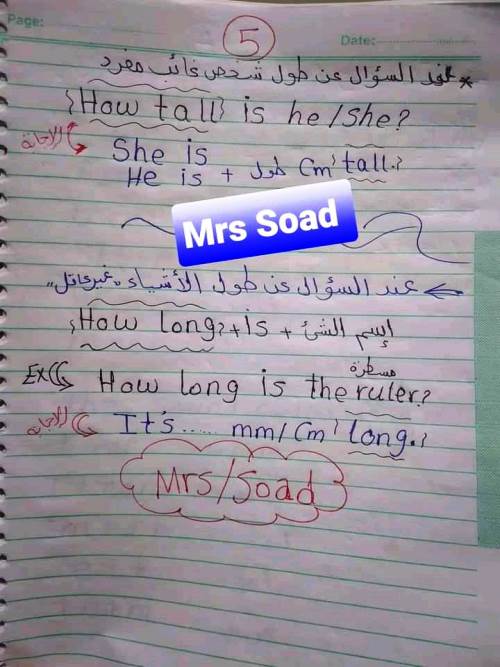 Page:
5
Date:
* عند السؤال عن طول شخص غائب مفرد
{How tall} is he/she?
الإجابة
She is
He is + طول Cm tall.
Mrs Soad
عند السؤال عن طول الأشياء "غير عاقل"
{How long} + is + إسم الشئ
مسطرة
Ex How long is the ruler?
الإجابة It's ...... mm/Cm long.
Mrs/Soad